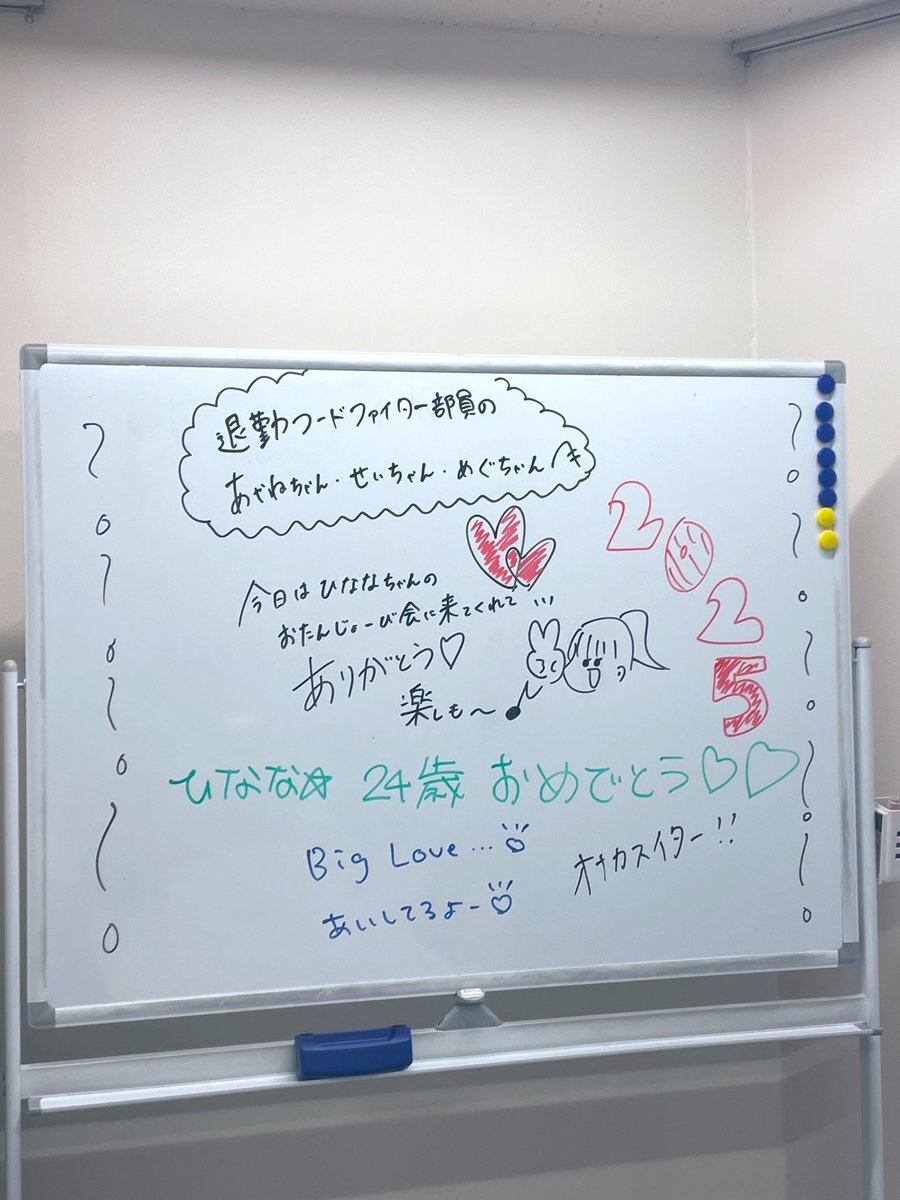 退勤フードファイター部員の
あやねちゃん・せいちゃん・めぐちゃんへ
2025
今日はひななちゃんの
おたんじょーび会に来てくれて…
ありがとう♡
楽しも〜♪
ひなな☆ 24歳 おめでとう♡♡
Big Love…
オナカスイター!!
あいしてるよー